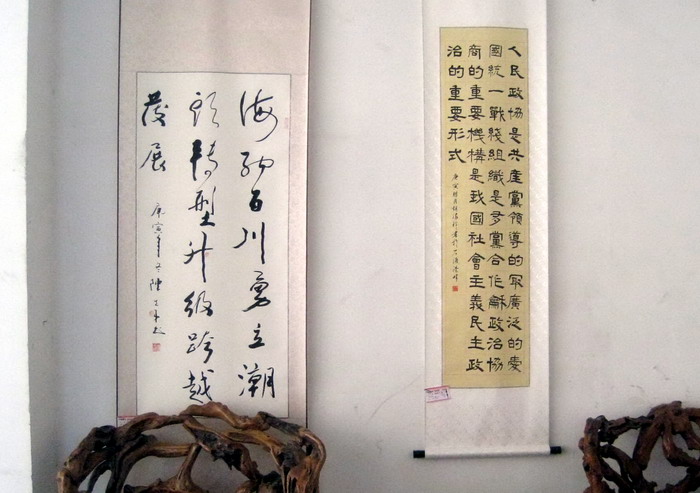 海納百川勇立潮
頭轉型升級跨越
發展
庚寅年冬陳
人民政協是共產黨領導的冣廣泛的愛
國統一戰綫組織是多黨合作龢政治協
商的重要機構是我國社會主義民主政
治的重要形式